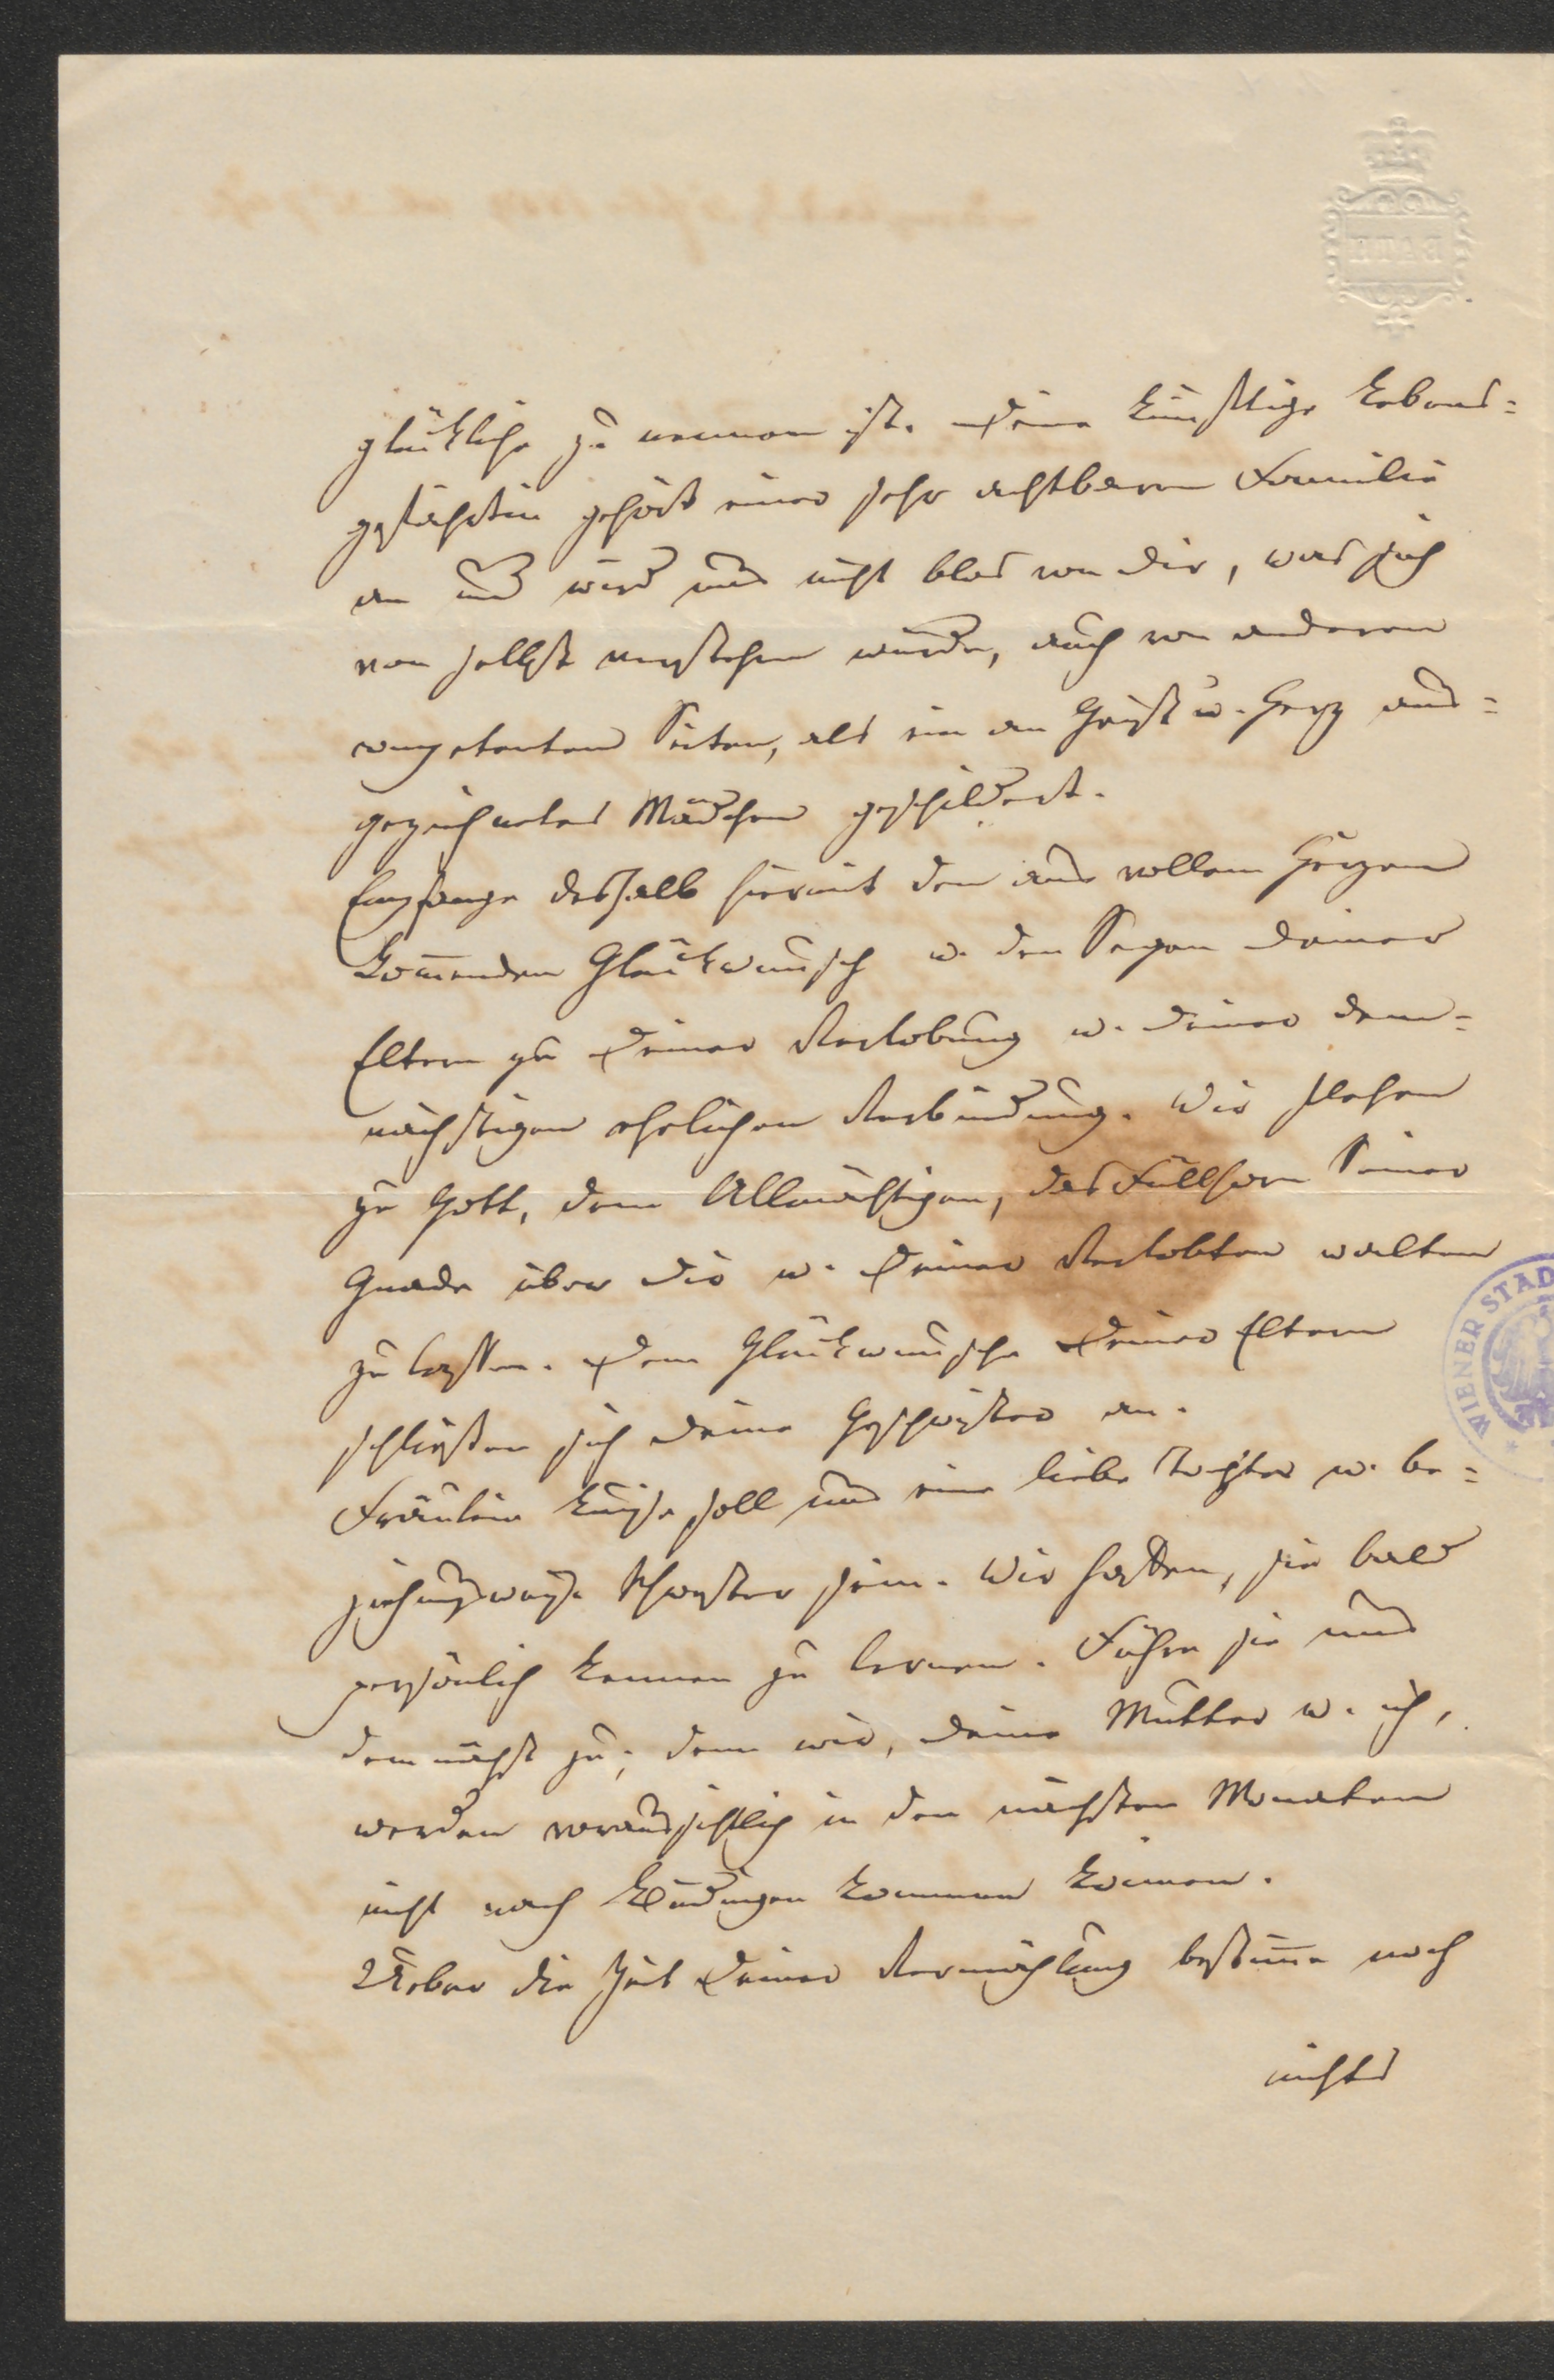 glückliche zu nennen ist. Deine künftige Lebens=
gefährtin gehört einer sehr achtbaren Familie
an und wird uns nicht blos von dir, was sich
von selbst verstehen würde, auch von anderen
competenten Seiten, als ein an Geist u. Herz aus=
gezeichnetes Mädchen geschildert.
Empfange deshalb hiermit den aus vollem Herzen
kom̅enden Glückwunsch u. den Segen deiner
Eltern zu Deiner Verlobung u. deiner dem=
nächstigen ehelichen Verbindung. Wir flehen
zu Gott, dem Allmächtigen, das Füllhorn Seiner
Gnade über dir u. Deiner Verlobten walten
zu lassen. Dem Glückwunsche Deiner Eltern
schließen sich deine Geschwister an.
Fräulein Luise soll uns eine liebe Tochter u. be=
ziehungsweise Schwester sein. Wir hoffen, sie bald
persönlich kennen zu lernen. Führe sie uns
demnächst zu; denn wir, deine Mutter u. ich,
werden voraussichtlich in den nächsten Monaten
nicht nach kommen können.
Ueber die Zeit Deiner Vermählung bestim̅e noch
nichts
BATH
WIENER STAD